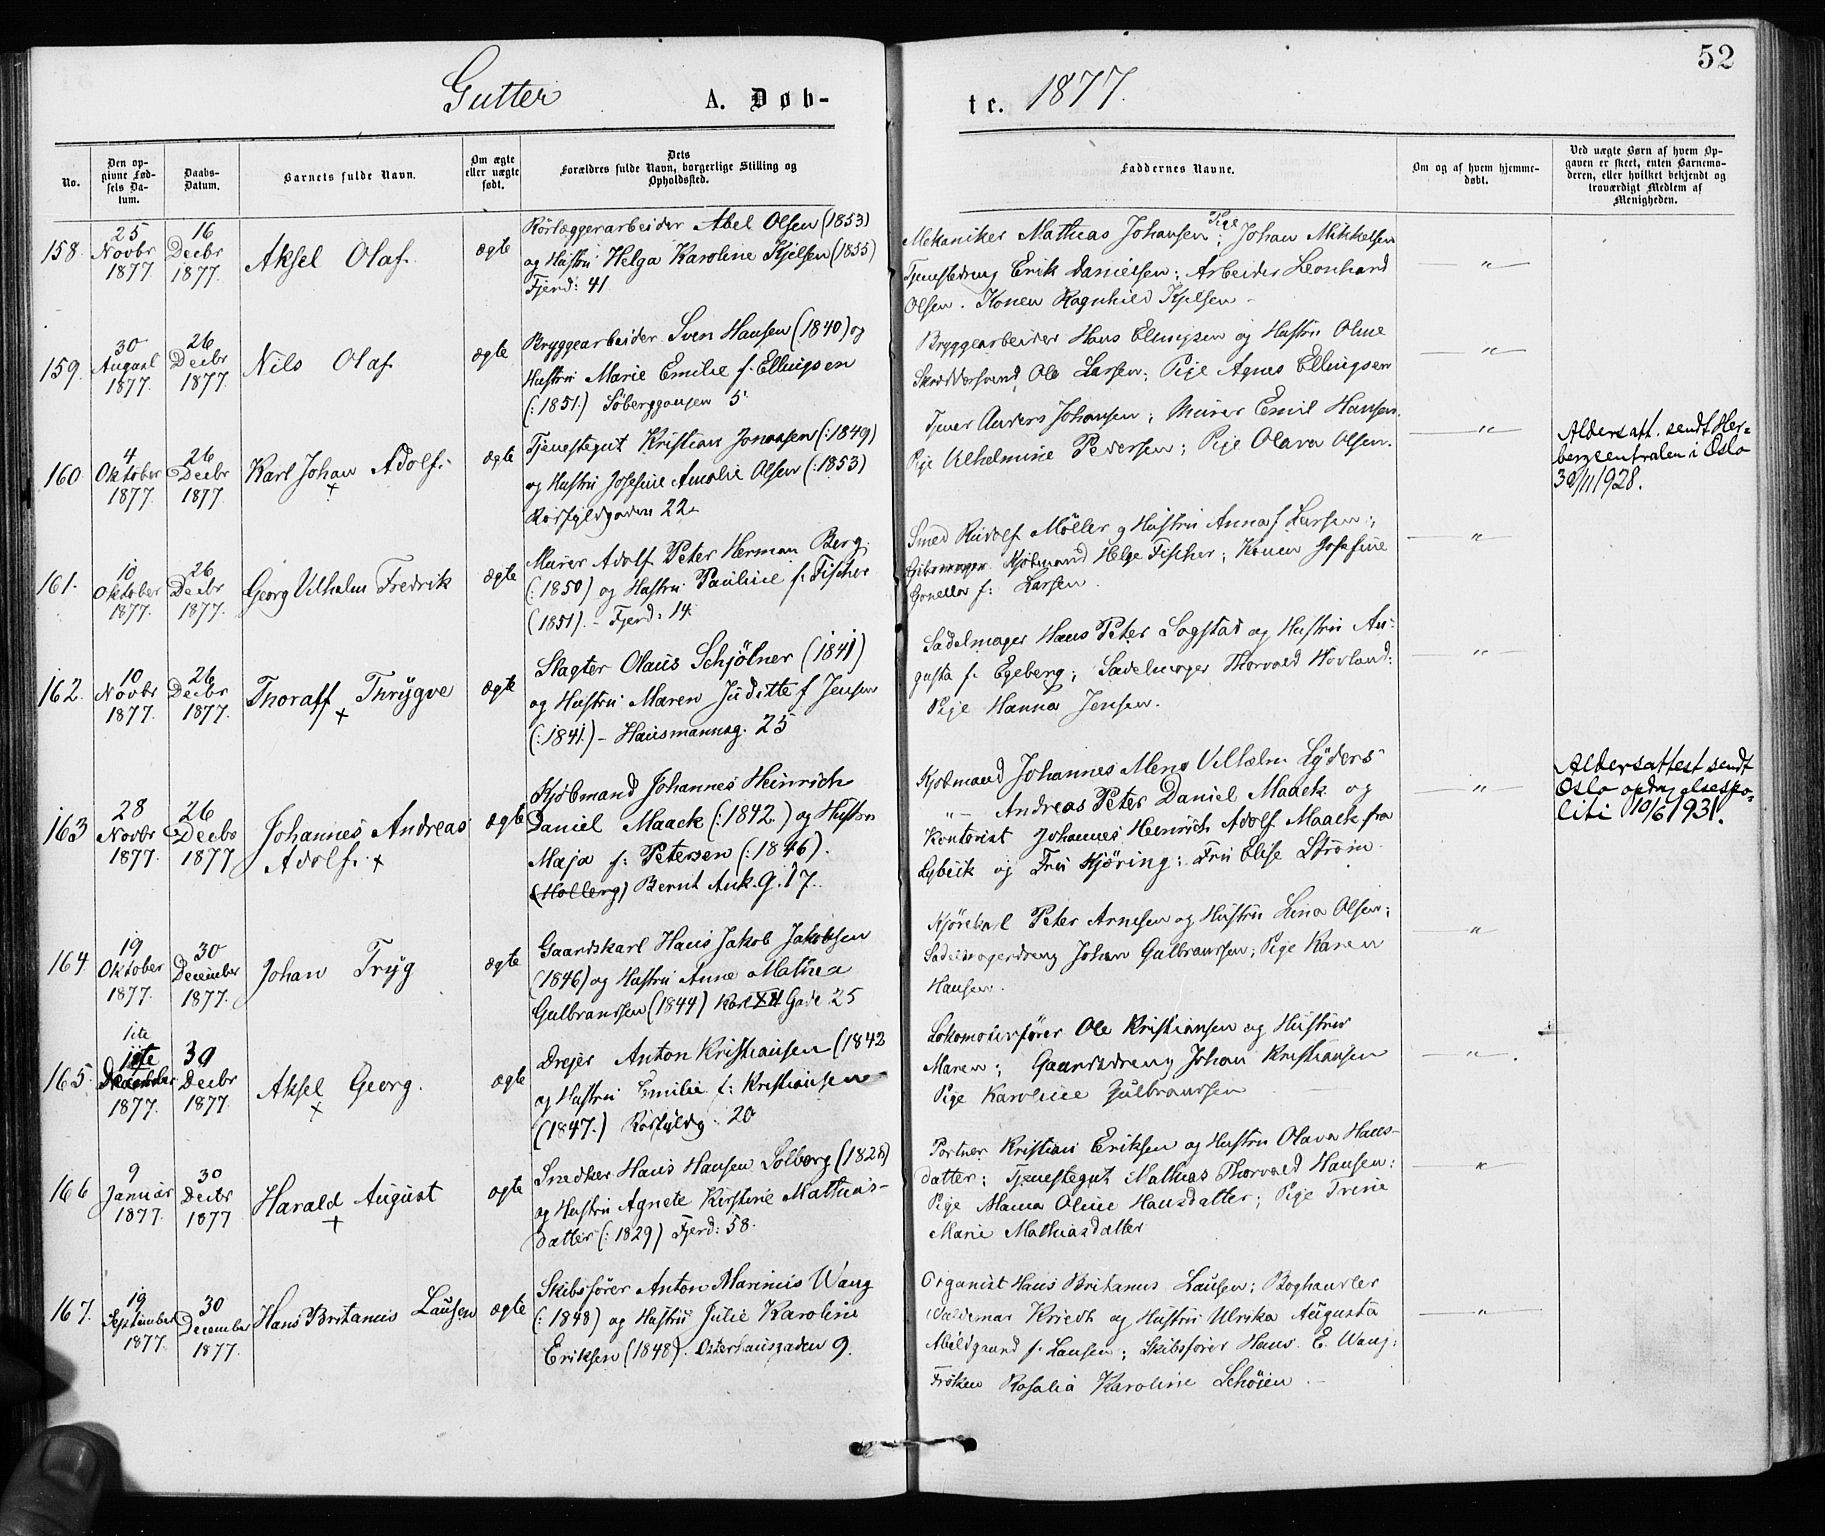 52
Gutter A. Døb-
te. 1877.
No.
Den op-
givne Fød-
sels Da-
tum.
Daabs-
Datum.
Barnets fulde Navn.
Om ægte
eller uægte
født.
Dets
Forældres fulde Navn, borgerlige Stilling og
Opholdssted.
Faddernes Navne.
Om og af hvem hjemme-
døbt.
Ved uægte Børn af hvem Op-
gaven er skeet, enten Barnemo-
deren, eller hvilket bekjendt og
troværdigt Medlem af
Menigheden.
158.
25
Novbr
1877
16
Decbr
1877.
Aksel Olaf.
ægte
Rörlæggerarbeider Abel Olsen (1853)
og Hustru Helga Karoline Kjelsen (1855)
Fjerd: 41
Mekaniker Mathias Johansen; Pige Johan Mikkelsen
Tjenestedreng Erik Danielsen; Arbeider Leonhard
Olsen. Konen Ragnhild Kjelsen -
— " —
159.
30
August
1877.
26
Decbr
1877.
Nils Olaf
ægte
Bryggearbeider Sven Hansen (1840) og
Hustru Marie Emilie f. Ellingsen
(: 1851.) Söberggangen 5
Bryggearbeider Hans Ellingsen og Hustru Oline
Skræddersvend Ole Larsen; Pije Agnes Ellingsen
— " —
160
4
Oktober
1877.
26
Decbr
1877.
Karl Johan Adolf.
+
ægte
Tjenestegut Kristian Jonassen (: 1849)
og Hustru Josefine Amalie Olsen (: 1853)
Rosfyldgaden 22
Tjener Anders Johansen; Murer Emil Hansen.
Pije Vilhelmine Pedersen; Pije Olava Olsen.
— " —
Aldersatt. sendt Her=
bergcentralen i Oslo
30/11 1928.
161.
10
Oktober
1877.
26
Decbr
1877.
Georg Vilhelm Fredrik
ægte
Murer Adolf Peter Herman Berg
(: 1850) og Hustru Pauline f. Fischer
(1851). - Fjerd: 14
Smed Rudolf Möller g Hustru Anna f Larsen;
Kjøbmand Helge Fischer; Konen Josefine
Gonella f: Larsen.
— " —
162.
10
Novbr
1877.
26
Decbr
1877.
Thoralf Thrygve
+
ægte
Slagter Olaus Schjölner (1841)
og Hustru Maren Juditte f Jensen
(: 1841.) - Hausmannsg. 25
Sadelmager Hans Peter Sogstad og Hustru Au-
gusta f. Egeberg; Sadelmager Thorvald Hovland;
Pije Hanna Jensen.
— " —
163
28
Novbr
1877.
26
Decbr
1877
Johannes Andreas
Adolf. +
ægte
Kjöbmand Johannes Heinrich
Daniel Maack (: 1842.) og Hustru
Maja f: Petersen (: 1846).
(Holberg) Bernt Ank. G. 17.
Kjöbmand Johannes Mens Vilhelm Lyders
" - Andreas Peter Daniel Maack og
Kontorist Johannes Heinrich Adolf Maack fra
Lybeik og Fru Kjöring; Fru Elise Ström.
— " —
Aldersattest sendt
Oslo opdagelsespo-
liti 10/6 1931.
164.
19
Oktober
1877.
30
December
1877.
Johan Tryg
ægte
Gaardskarl Hans Jakob Jakobsen
(1846) og Hustru Anne Mathea
Gulbranssen (1844) Karl XII Gade 25
Kjörekarl Peter Arnesen og Hustru Lina Olsen;
Sadelmagerdreng Johan Gulbranssen; Pige Karen
Hansen.
— " —
165.
1ite
1877.
30
Decbr
1877.
Aksel Georg.
+
ægte
Drejer Anton Kristiansen (1842
og Hustru Emilie f: Kristiansen
(1847.) Rosfyldg. 20
Lokomotivförer Ole Kristiansen og Hustru
Maren; Gaardsdreng Johan Kristiansen
Pige Karoline Gulbranssen
— " — .
166
9
Januar
1877.
30
Decbr
1877
Harald August
+
ægte
Snedker Hans Hansen Solberg (1828)
og Hustru Agnete Kirstine Mathias-
datter (: 1829) Fjerd: 58.
Portner Kristian Eriksen og Hustru Olava Hans-
datter; Tjenestegut Mathias Thorvald Hansen;
Pige Hanna Oline Hansdatter; Pige Trine
Marie Mathiasdatter
— " —
167.
19
September
1877.
30
December
1877.
Hans Britanus Lausen
ægte
Skibsförer Anton Marinius Wang
(: 1848) og Hustru Julie Karoline
Eriksen (1848). Osterhausgaden 9.
Organist Hans Britanus Lausen; Boghandler
Valdemar Kriedt og Hustru Ulrika Augusta
Abildgaard f. Lausen; Skibsförer Hans E. Wang;
Fröken Rosalia Karoline Schöien -
— " —